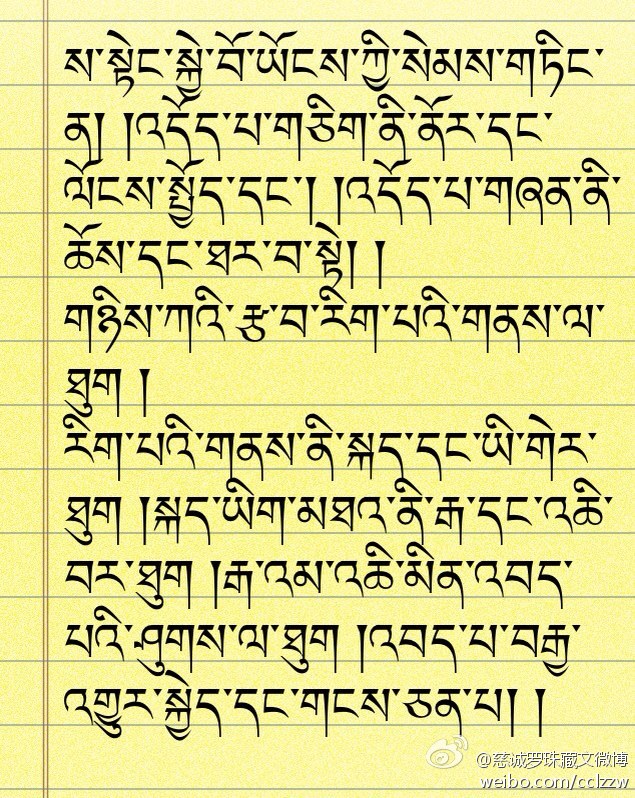 ས་སྟེང་སྐྱེ་བོ་ཡོངས་ཀྱི་སེམས་གཏིང་
ན། །འདོད་པ་གཅིག་ནི་ནོར་དང་
ལོངས་སྤྱོད་དང་། །འདོད་པ་གཞན་ནི་
ཆོས་དང་ཐར་བ་སྟེ། །
གཉིས་ཀའི་རྩ་བ་རིག་པའི་གནས་ལ་
ཐུག །
རིག་པའི་གནས་ནི་སྐད་དང་ཡི་གེར་
ཐུག །སྐད་ཡིག་མཐའ་ནི་རྒ་དང་འཆི་
བར་ཐུག །རྒ་འམ་འཆི་མིན་འབད་
པའི་ཤུགས་ལ་ཐུག །འབད་པ་བརྒྱ་
འགྱུར་སྐྱེད་དང་གངས་ཅན་པ། །
@慈诚罗珠藏文微博
weibo.com/cclzzw